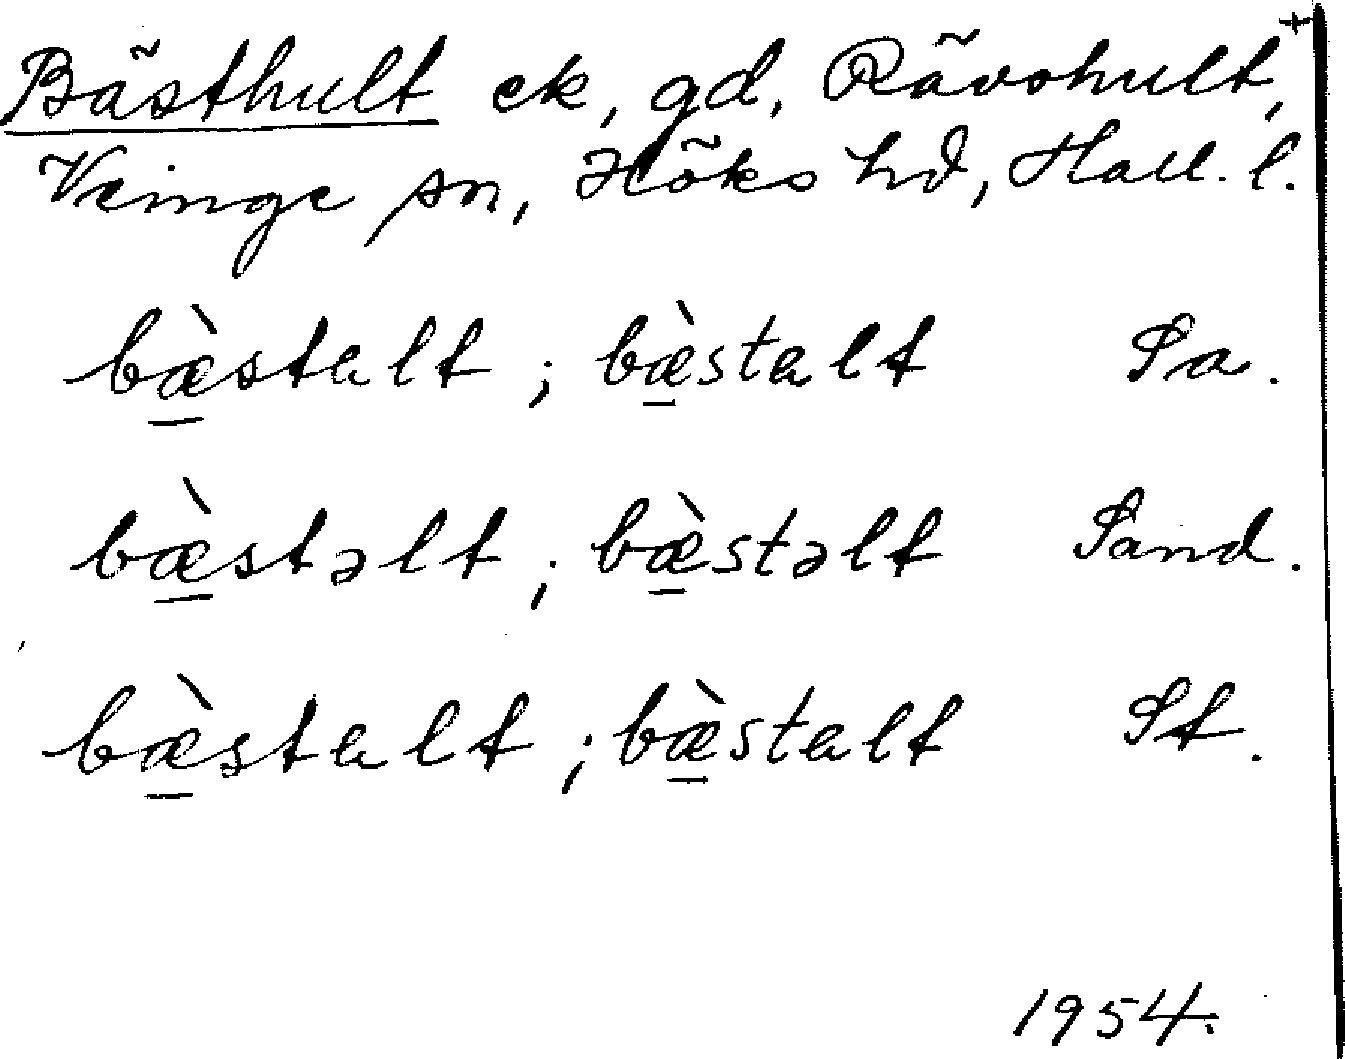 Bästhult ek, gd, Rävohult,+
Veinge sn, Höks hd, Hall. l.
bæ̀stalt ; bæ̀stalt Sa.
bæ̀stəlt ; bæ̀stəlt Sand.
bæ̀stalt ; bæ̀stalt St.
1954.